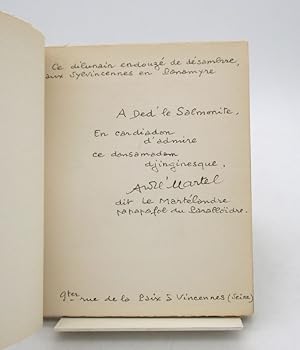 Ce dilunair endouzé de désambre,
aux sylvincennes en Paramyre
A Ded' le Salmonite,
En cardiadon
d'admire
ce dansamadam
djinginesque,
André Martel
dit Le Martélandre
papapafol du Paralloïdre.
9ter rue de la Paix à Vincennes (Seine)